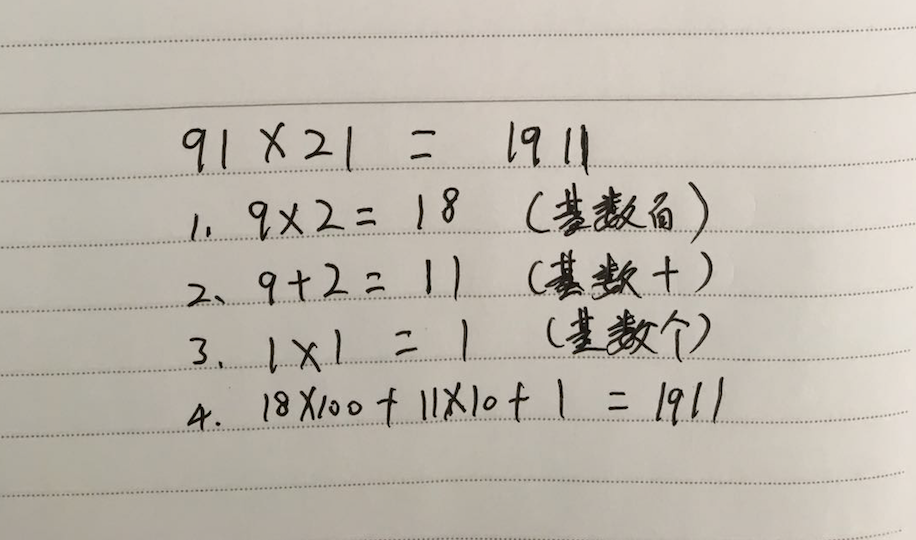 91 × 21 = 1911
1. 9×2 = 18 (基数百)
2、9+2 = 11 (基数十)
3. 1×1 = 1 (基数个)
4. 18×100 + 11×10 + 1 = 1911